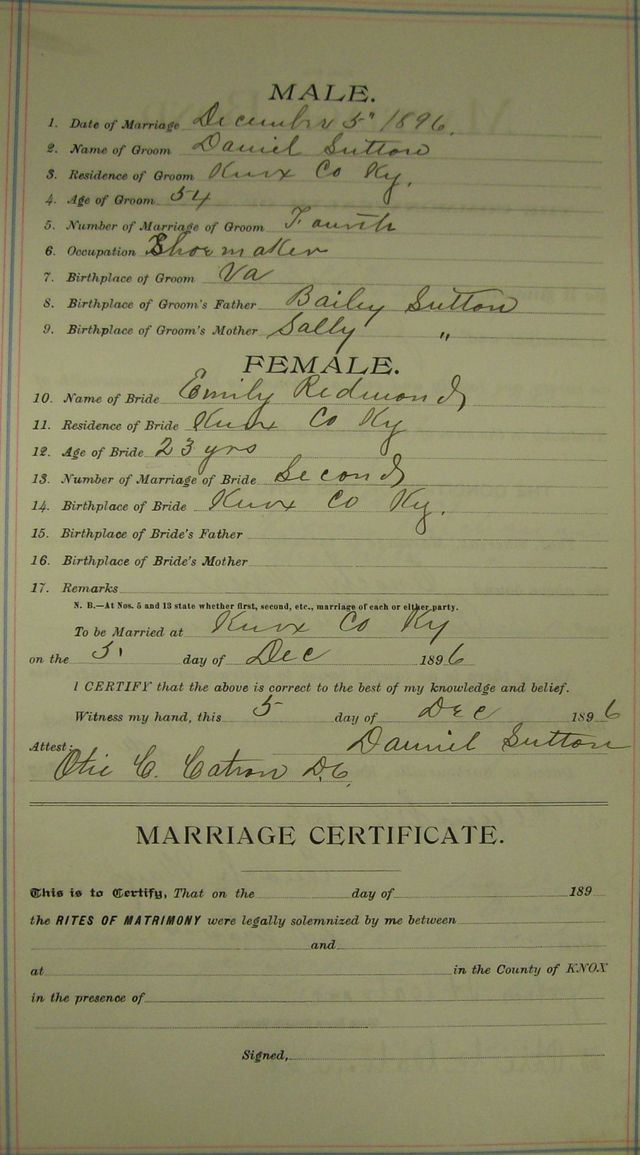 MALE.
1. Date of Marriage December 5" 1896.
2. Name of Groom Daniel Sutton
3. Residence of Groom Knox Co Ky.
4. Age of Groom 54
5. Number of Marriage of Groom Fourth
6. Occupation Shoemaker
7. Birthplace of Groom Va
8. Birthplace of Groom's Father Bailey Sutton
9. Birthplace of Groom's Mother Sally "
FEMALE.
10. Name of Bride Emily Redmond
11. Residence of Bride Knox Co Ky
12. Age of Bride 23 yrs
13. Number of Marriage of Bride Second
14. Birthplace of Bride Knox Co Ky.
15. Birthplace of Bride's Father
16. Birthplace of Bride's Mother
17. Remarks
N. B.—At Nos. 5 and 13 state whether first, second, etc., marriage of each or either party.
To be Married at Knox Co Ky
on the 5 day of Dec 1896
I CERTIFY that the above is correct to the best of my knowledge and belief.
Witness my hand, this 5 day of Dec 1896
Daniel Sutton
Attest:
Otie C. Catron D.C.
MARRIAGE CERTIFICATE.
This is to Certify, That on the day of 189
the RITES OF MATRIMONY were legally solemnized by me between
and
at in the County of KNOX
in the presence of
Signed,